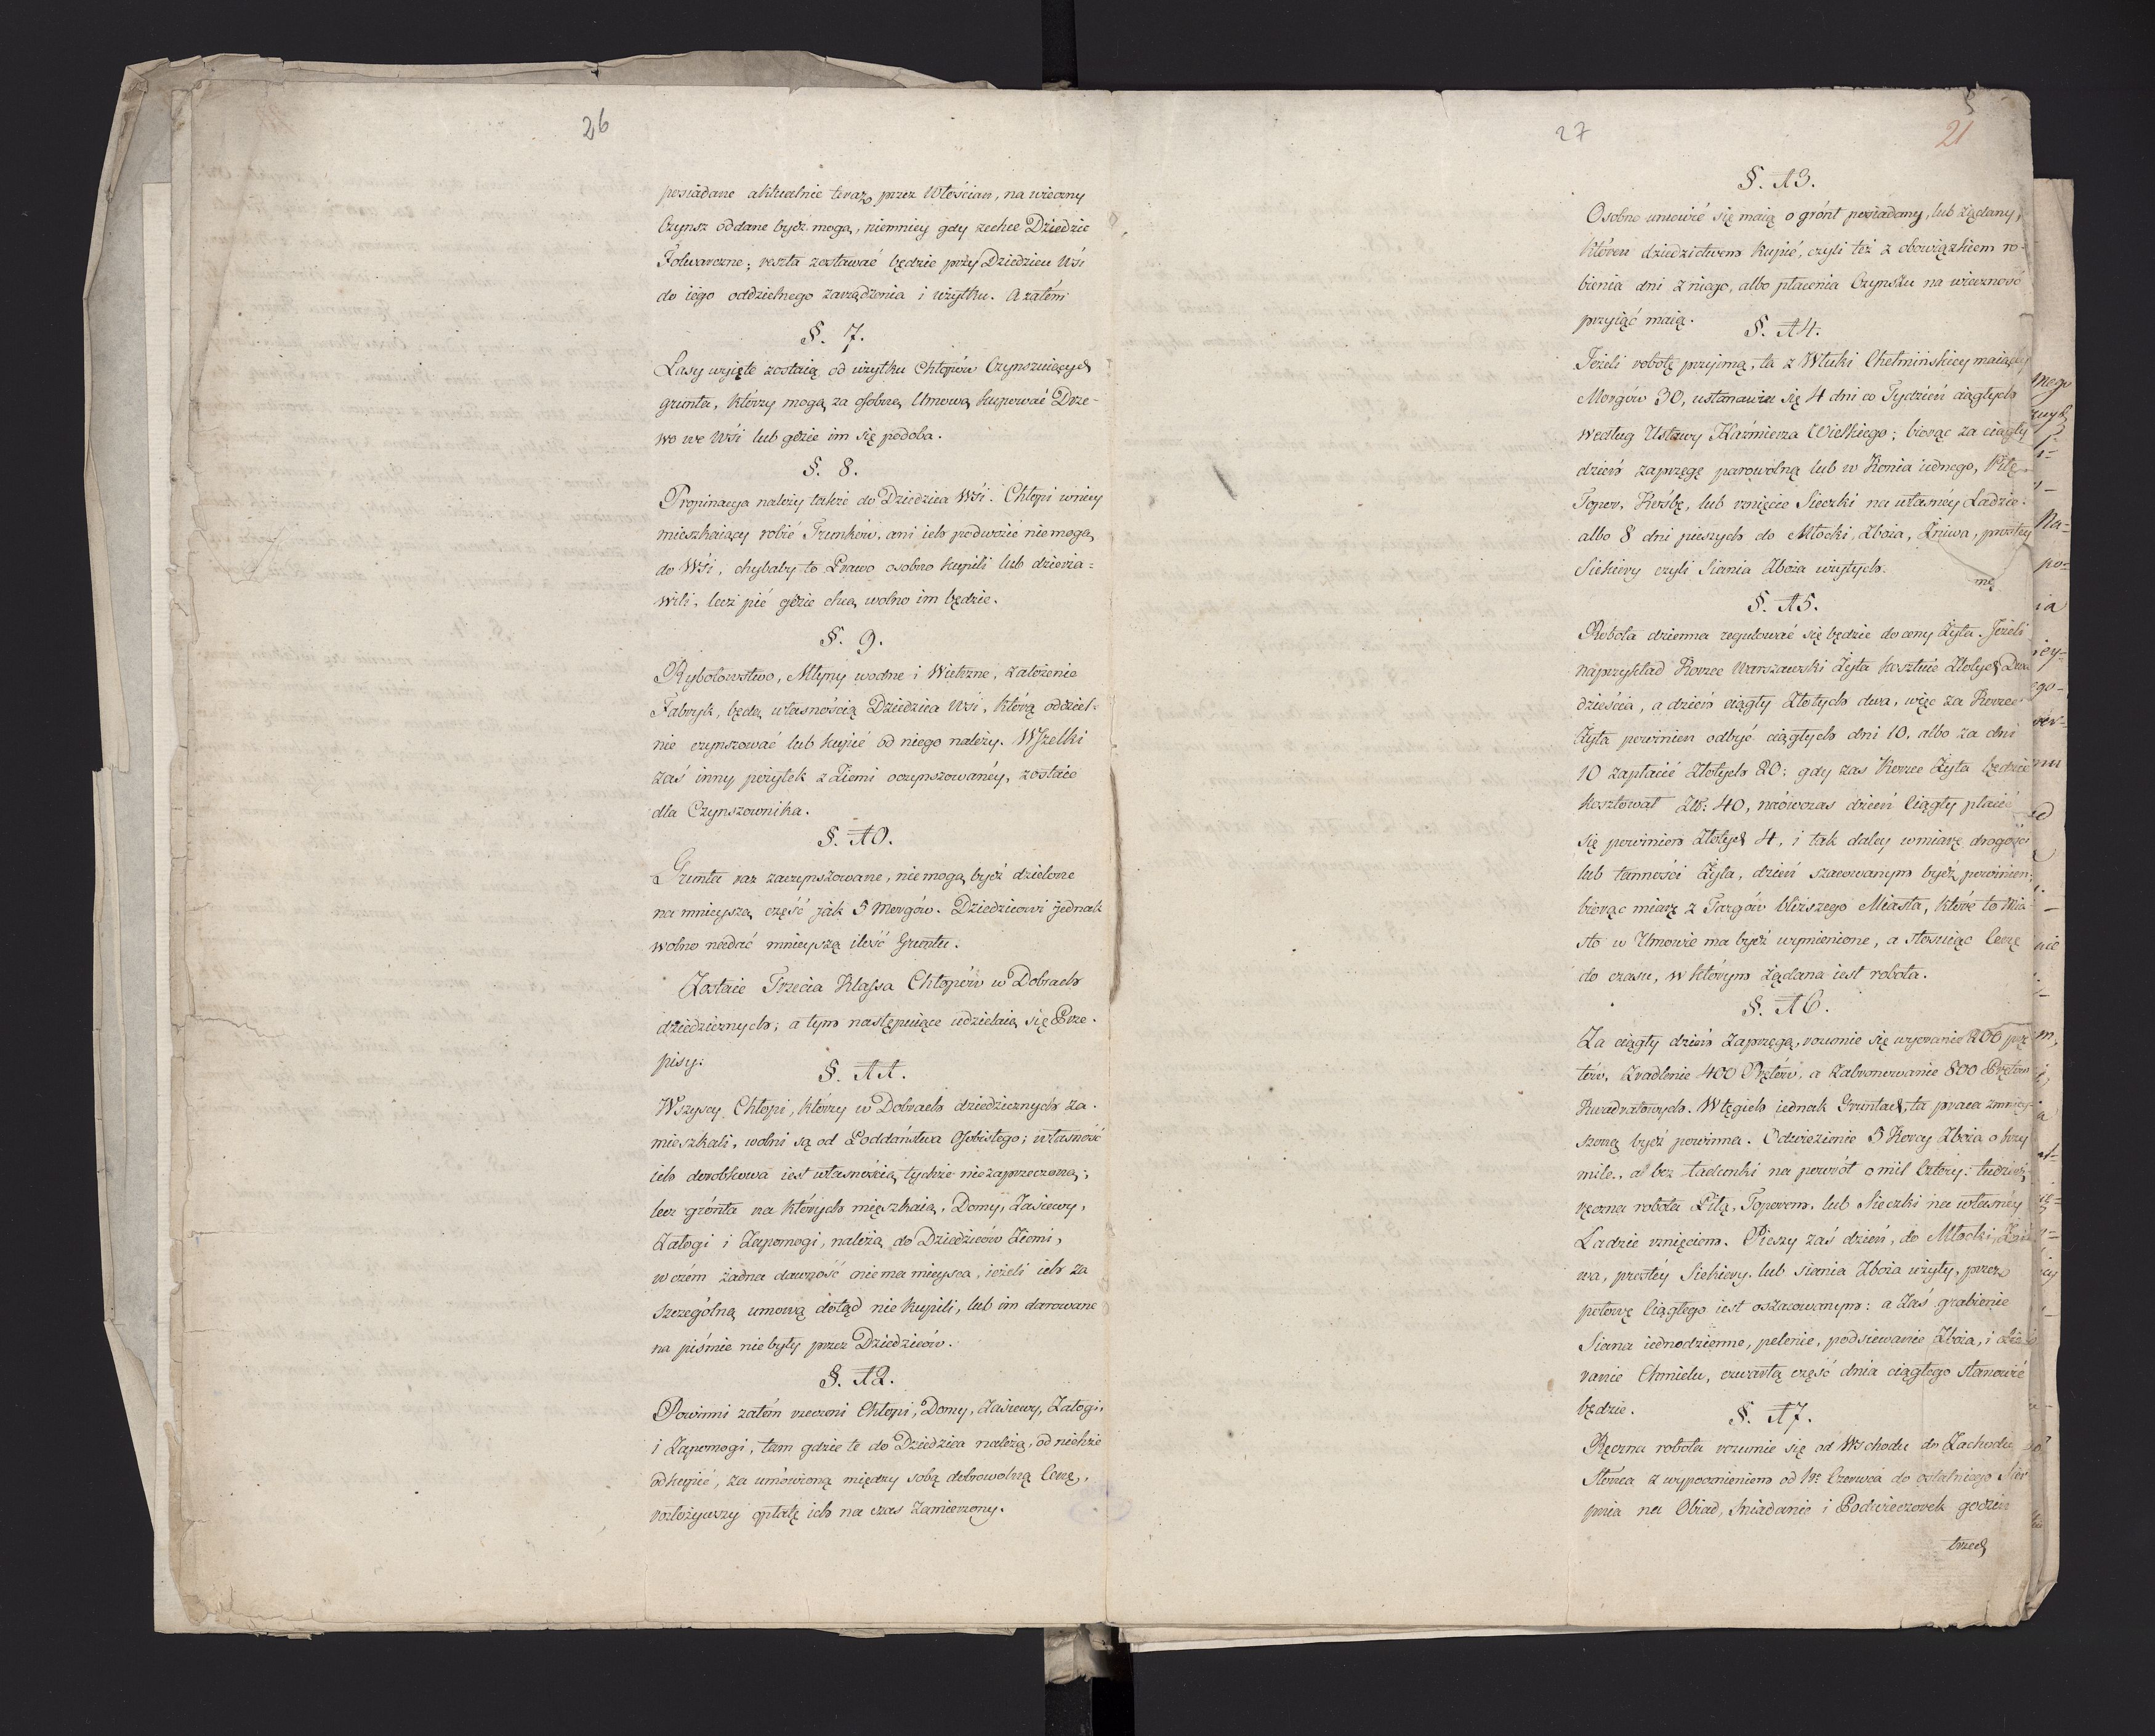 26
posiadane aktualnie teraz przez Włościan, na wieczny
Czynsz oddane bydź mogą, niemniey gdy zechce Dziedzic
Folwarczne; reszta zostawać będzie przy Dziedzicu Wsi
do iego oddzielnego zarządzenia i użytku. A zatém
§. 7.
Lasy wyięte zostaią od użytku Chłopów Czynszuiących
grunta, którzy mogą za osobną Umową kupować Drze-
wo we Wsi lub gdzie im się podoba.
§. 8.
Propinacya należy także do Dziedzica Wsi. Chłopi w niey
mieszkaiący robić Trunków, ani ich podwozić nie mogą
do Wsi, chybaby to Prawo osobno kupili lub dzierża=
wili, lecz pić gdzie chcą wolno im będzie.
§. 9.
Rybołowstwo, Młyny wodne i Wietrzne, założenie
Fabryk, będą własnością Dziedzica Wsi, którą oddziel-
nie czynszować lub kupić od niego należy. Wszelki
zaś inny pożytek z Ziemi oczynszowanéy, zostaie
dla Czynszownika.
§. 10.
Grunta raz zaczynszowane, nie mogą bydź dzielone
na mnieyszą część jak 5 Morgów. Dziedzicowi jednak
wolno nadać mnieyszą ilość Gruntu.
Zostaie Trzecia Klassa Chłopów w Dobrach
dziedzicznych; a tym następuiące udzielaią się Prze-
pisy:
§. 11.
Wszyscy Chłopi, którzy w Dobrach dziedzicznych za-
mieszkali, wolni są od Poddaństwa Osobistego; własność
ich dorobkowa iest własnością tychże niezaprzeczoną;
lecz grónta na których mięszkaią, Domy, Zasiewy,
Załogi i Zapomogi, należą do Dziedziców Ziemi,
w czém żadna dawność nie ma mieysca, ieżeli ich za
szczególną umową dotąd nie kupili, lub im darowane
na piśmie nie były przez Dziedziców.
§. 12.
Powinni zatém rzeczeni Chłopi, Domy, Zasiewy, Załogi,
i Zapomogi, tam gdzie te do Dziedzica należą, od niehże
odkupić, za umówioną między sobą dobrowolną Cenę,
rozłożywszy opłatę ich na czas zamierzony.
27
5
21
§. 13.
Osobno umówić się maią o grónt posiadany, lub żądany,
któren dziedzictwem kupić, czyli też z obowiązkiem ro-
bienia dni z niego, albo płacenia Czynszu na wieczność
przyiąć maią.
§. 14.
Jeżeli robotę przyimą, ta z Włuki Chełmińskiey maiącéy
Morgów 30, ustanawia się 4 dni co Tydzień ciągłych
według Ustawy Kaźmierza Wielkiego; biorąc za ciągły
dzień zaprzęgę parowolną lub w Konia iednego, Piłę
Topor, Kośbę, lub rznięcie Sieczki na własnéy Ladzie.
albo 8 dni pieszych do Młocki, Zboża, Żniwa, prostey
Siekiery czyli Siania Zboża użytych.
§. 15.
Robota dzienna regulować się będzie do ceny Żyta. Jeżeli
naprzykład Korzec Warszawski Żyta kosztuie Złotych Dwa
dzieścia, a dzień ciągły Złotych dwa, więc za Korzec
Żyta powinien odbyć ciągłych dni 10, albo za dni
10 zapłacić Złotych 20; gdy zas Korzec Żyta będzie
kosztował Zł: 40, naówczas dzień Ciągły płacić
się powinien Złotych 4, i tak daley w miarę drogości
lub tanności Żyta, dzień szacowanym bydź powinien;
biorąc miarę z Targów bliższego Miasta, które to Mia-
sto w Umowie ma bydź wymienione, a stosuiąc Cenę
do czasu, w którym żądana iest robota.
§. 16.
Za ciągły dzień Zaprzęgą, rozumie się wyoranie 200 prę
tów, Zradlenie 400 Prętów, a Zabronowanie 800 Prętów
Kwadratowych. W tęgich iednak Gruntach, ta praca zmniey-
szoną bydź powinna. Odwiezienie 5 Korcy Zboża o trzy
mile, a bez ładunku na powrót o mil Cztery: tudzież
ręczna robota Piłą, Toporem, lub Sieczki na własnéy
Ladzie rznięciem. Pieszy zaś dzień, do Młocki, Żni
wa, prostéy Siekiery, lub siania Zboża użyty, przez
połowę Ciągłego iest oszacowanym: a Zaś grabienie
Siana iednodzienne, pelenie, podsiewanie Zboża, i obie
ranie Chmielu, czwartą część dnia ciągłego stanowić
będzie.
§. 17.
Ręczna robota rozumie się od Wschodu do Zachodu
Słońca z wypocznieniem od 1go Czerwca do ostatniego Sier
pnia na Obiad, Sniadanie i Podwieczorek godzin
trzech